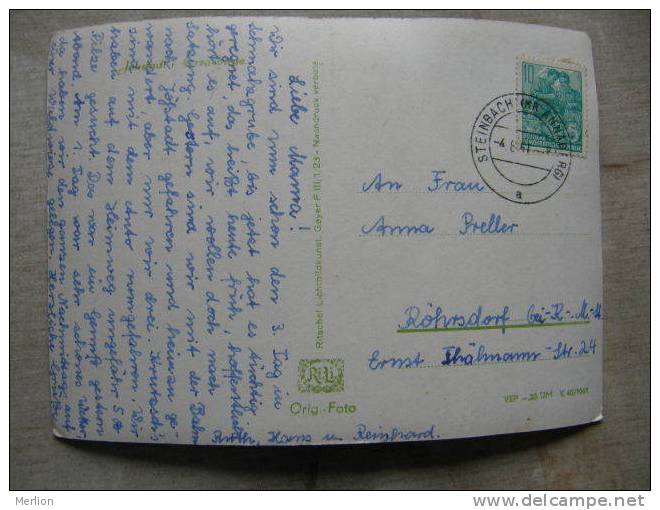 Liebe Mama!
Wir sind nun schon den 3. Tag in
Schmalzgrube, bis jetzt hat es tüchtig
geregnet das heißt heute früh, hoffentlich
hört es auf, wir wollen doch nach
Satzung. Gestern sind wir mit der Bahn
nach Jöhstadt gefahren und heimzu ge-
wandert, aber nur wir drei.
sind mit dem Auto rumgefahren. Wir
haben auf dem Heimweg ungefähr 5
Pilze gesucht. Das war ein gestern
abend. Am 1. Tag war sehr schönes Wetter,
da haben wir den ganzen Nachmittag auf
einer Waldwiese gelegen. Herzliche Grüße
Ruth, Hans u. Reinhard.
Ritschel Lichtbildkunst, Geyer F III/1/23 - Nachdruck verboten
RiLi
Orig.-Foto
10
STEINBACH (KR ANNABERG)
a
An Frau
Anna Preller
Röhrsdorf bei K.-M.-St
Ernst Thälmann-Str. 24
VEP -,25 DM
Merlion
www.delcampe.net